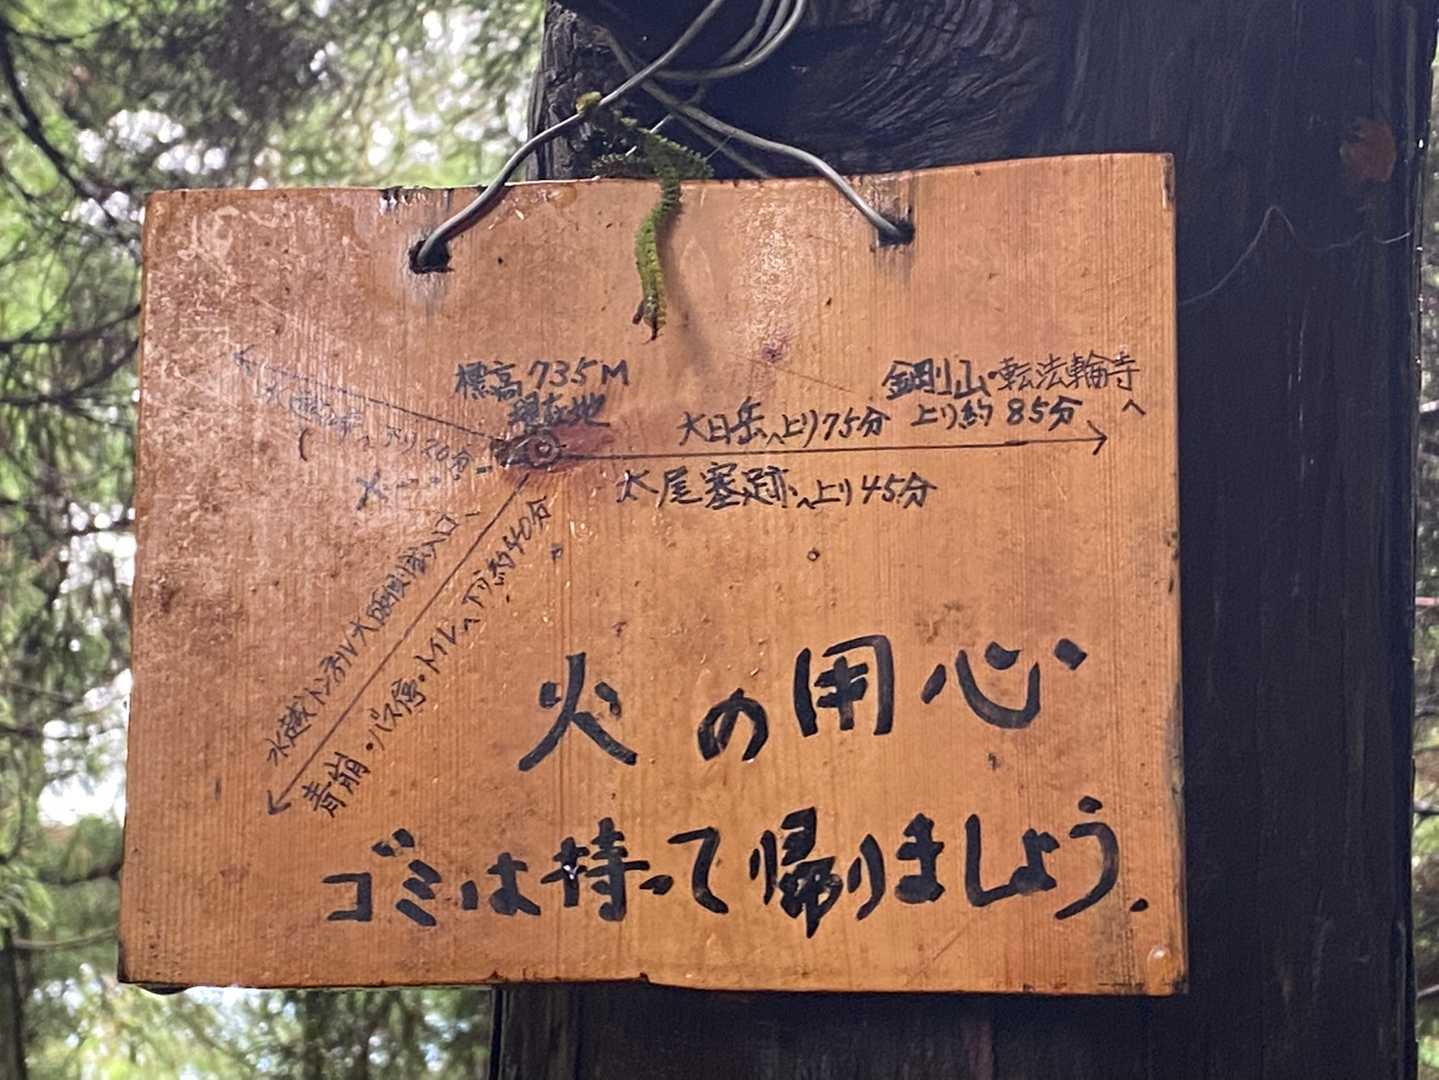 標高735M
現在地
金剛山・転法輪寺へ
上り約85分
大日岳へ上り75分
太尾塞跡へ上り45分
へ下り20分
水越トンネル大阪側入口へ
青崩・バス停・トイレへ下り約40分
火の用心
ゴミは持って帰りましょう.